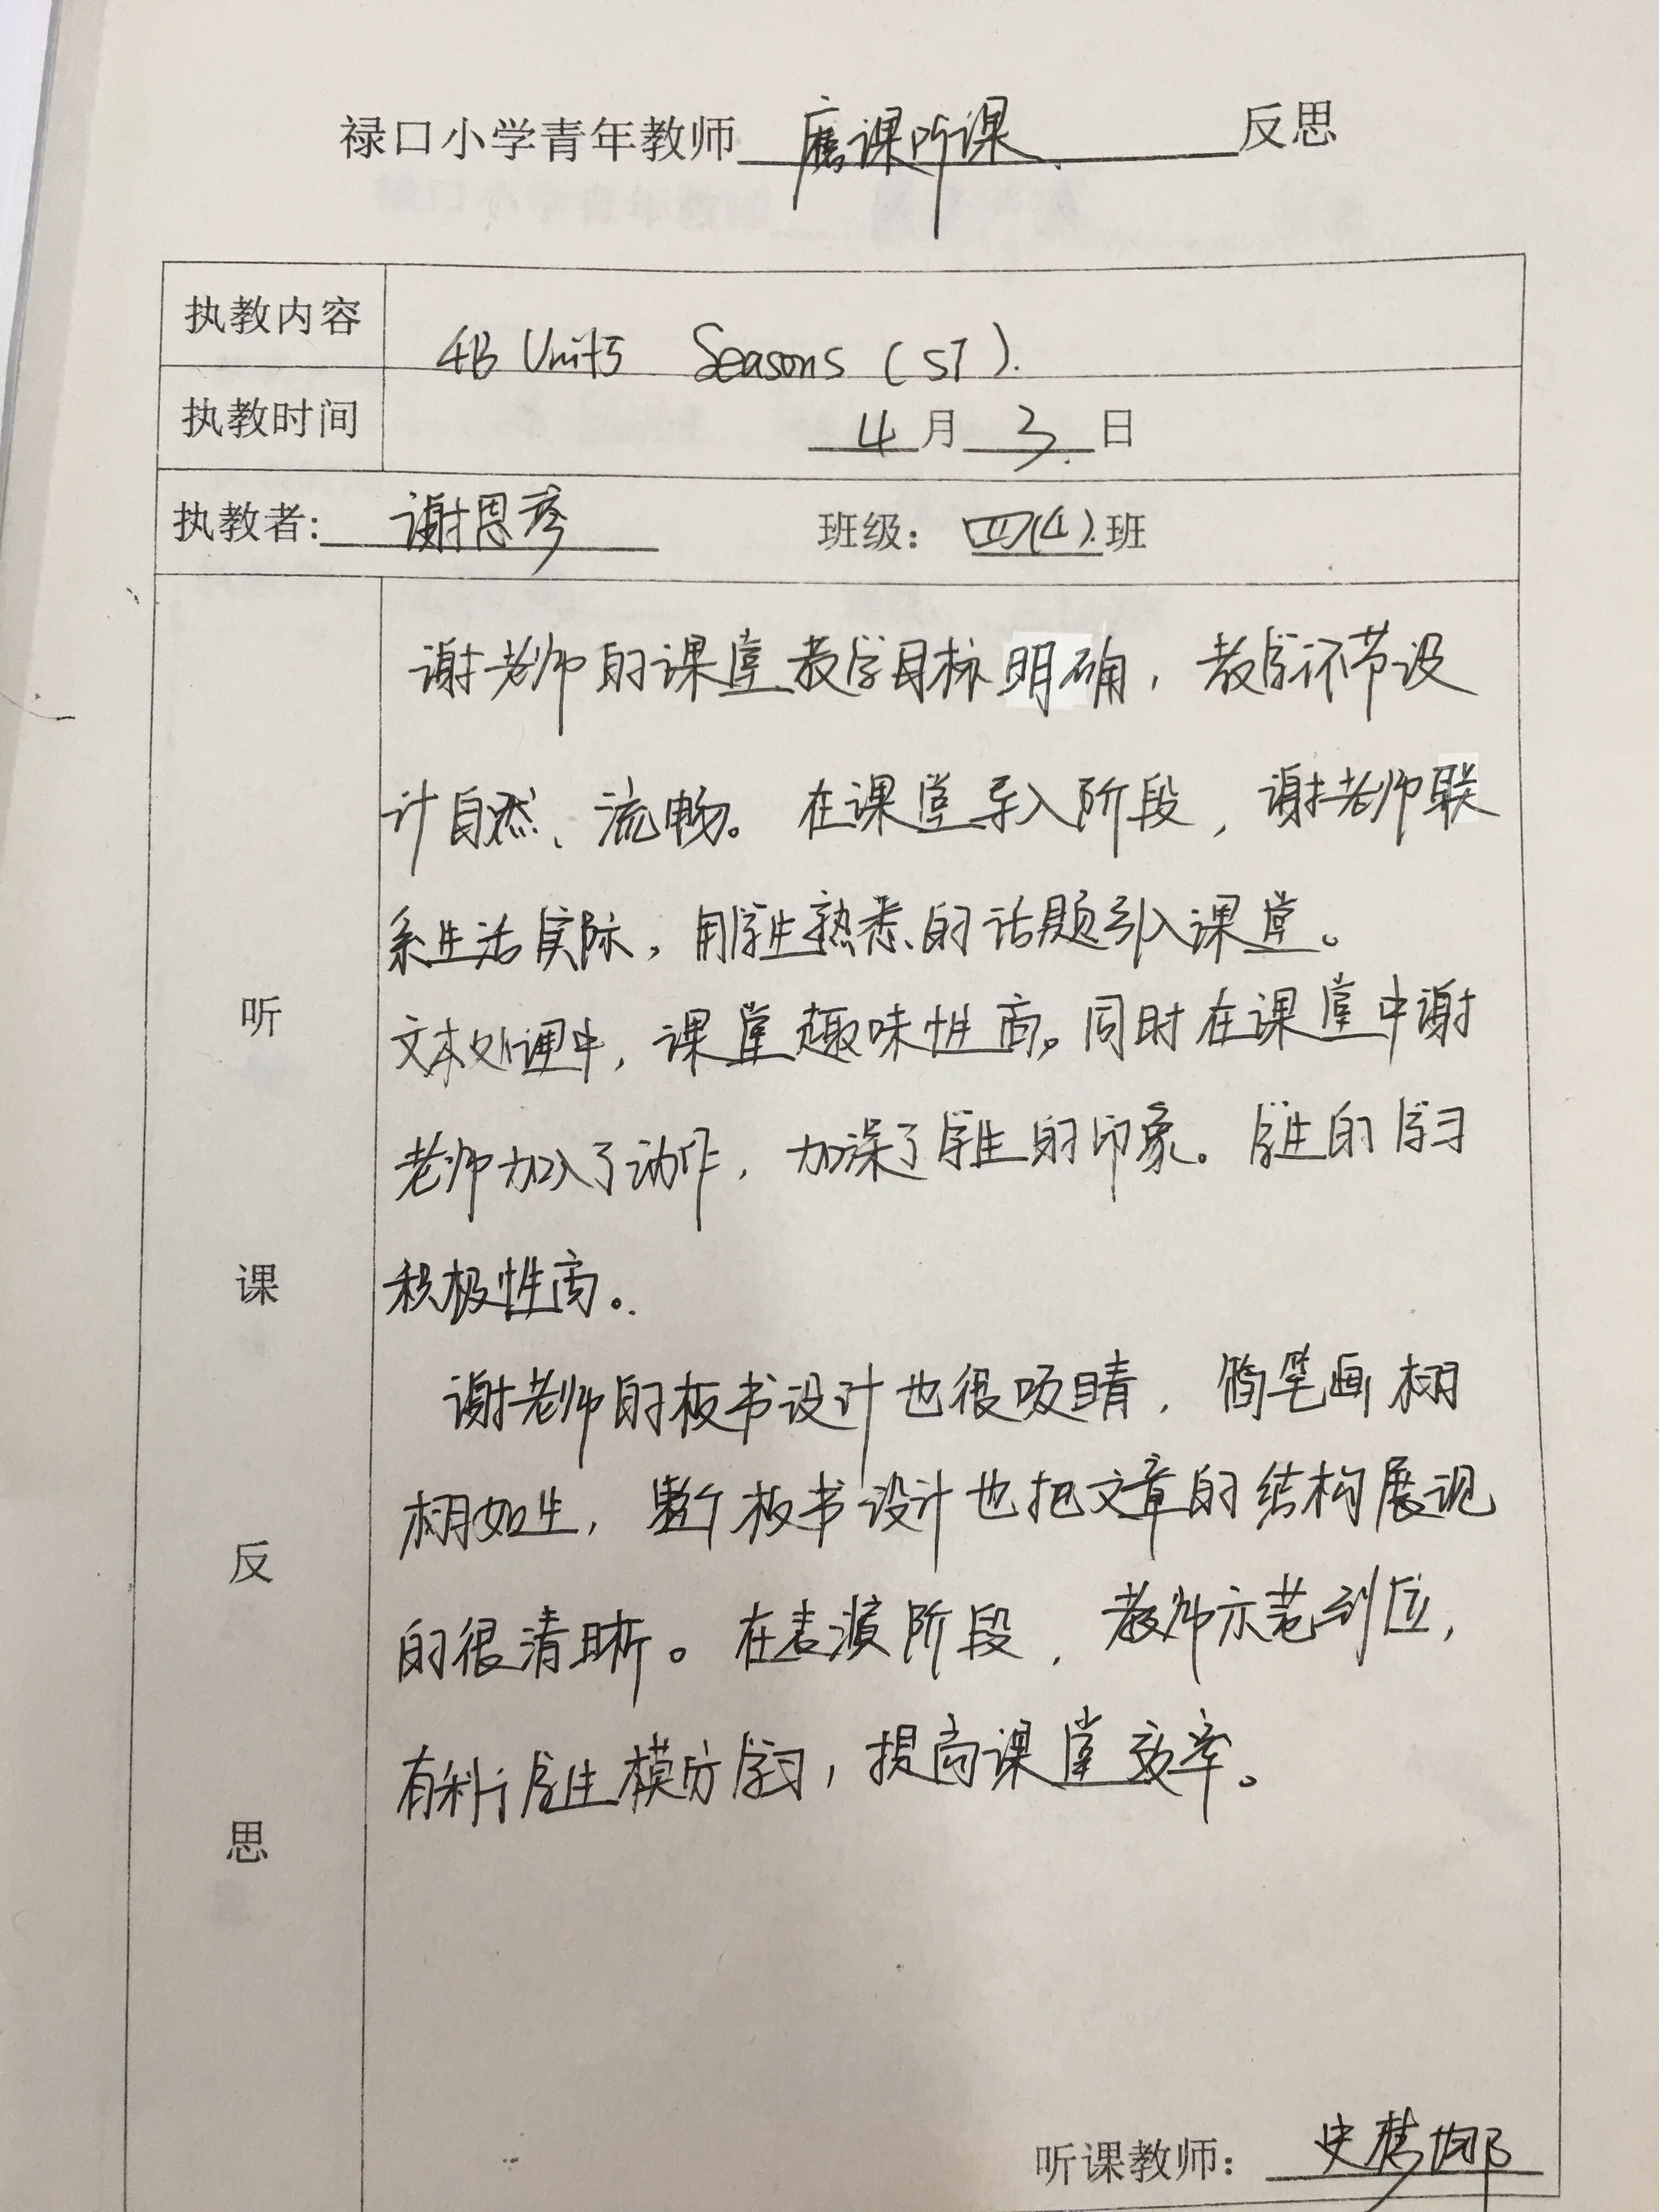 禄口小学青年教师 磨课听课 反思
执教内容 4B Unit5 Seasons (ST).
执教时间 4月3日
执教者: 谢思彦 班级: 四(4)班
谢老师的课堂教学目标明确，教学环节设
计自然、流畅。在课堂导入阶段，谢老师联
系生活实际，用学生熟悉的话题引入课堂。
文本处理中，课堂趣味性高。同时在课堂中谢
老师加入了动作，加深了学生的印象。学生的学习
积极性高。
谢老师的板书设计也很吸睛，简笔画栩
栩如生，整个板书设计也把文章的结构展现
的很清晰。在表演阶段，教师示范到位，
有利于学生模仿学习，提高课堂效率。
听
课
反
思
听课教师: 史梦娜